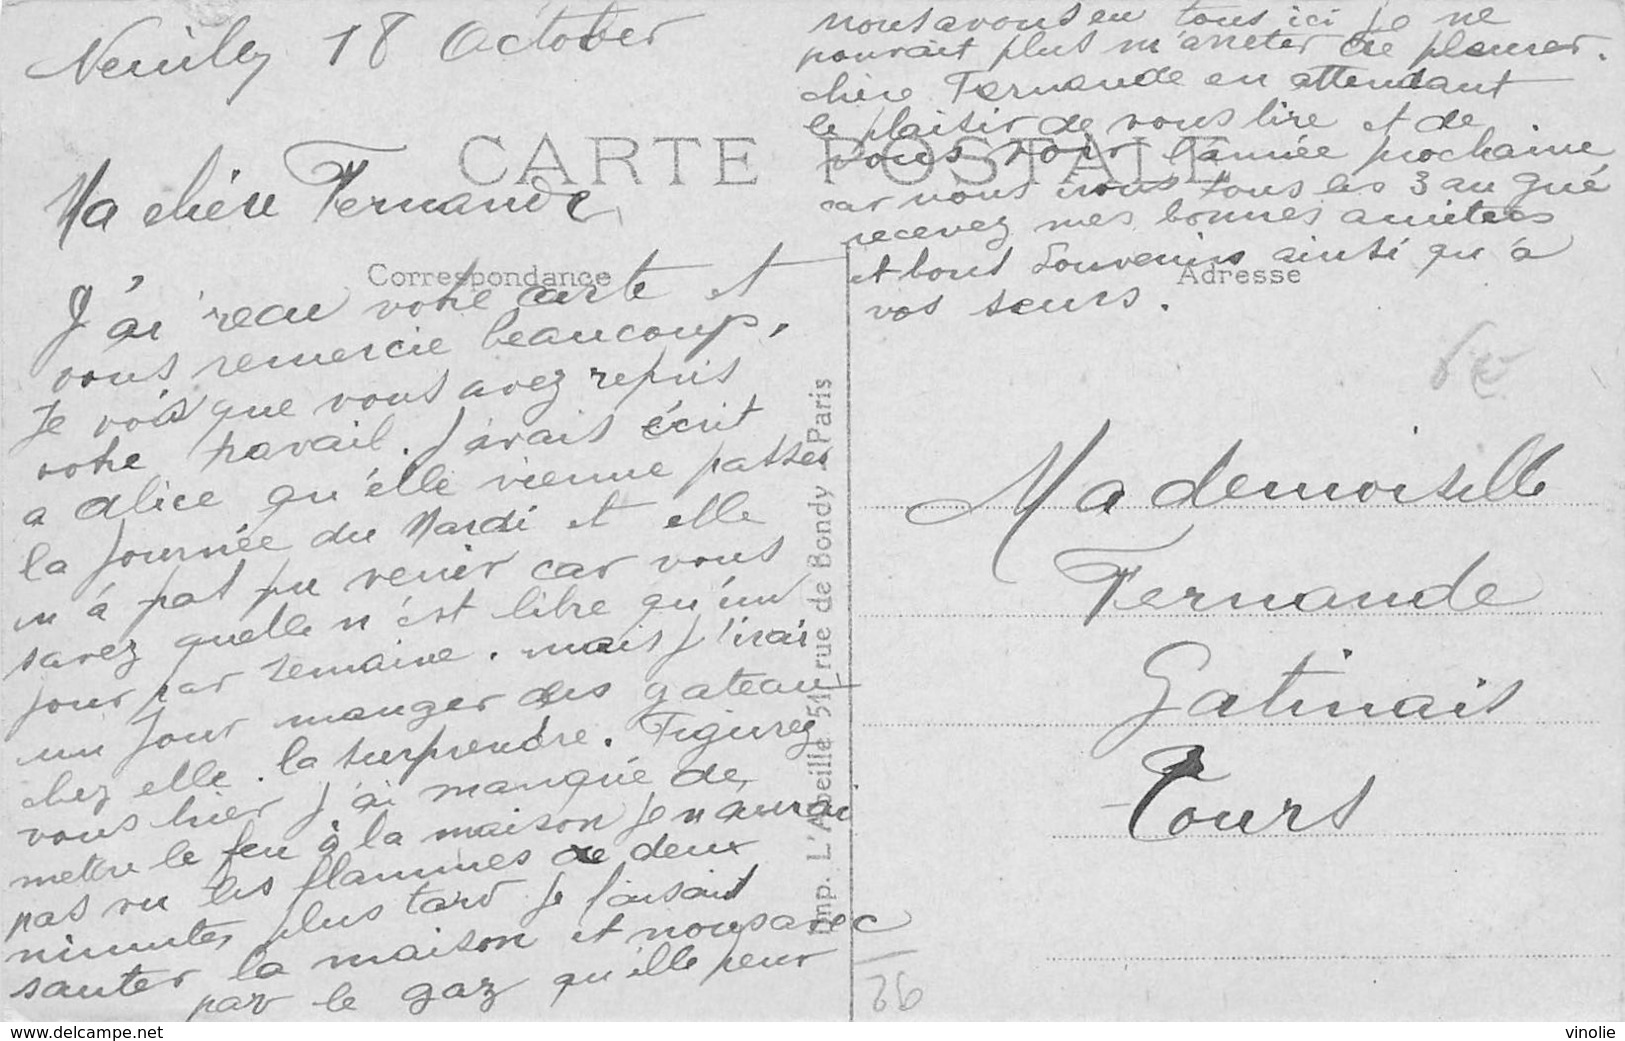 Neuilly 18 October
CARTE POSTALE
Ma chère Fernande
Correspondance
J'ai recu votre carte et
vous remercie beaucoup,
Je vois que vous avez repris
votre travail. J'avais écrit
a Alice qu'elle vienne passer
la journée du Mardi et elle
n'á pas pu venir car vous
savez quelle n'est libre qu'un
jour par semaine. mais j'irai
un jour manger des gateau
chez elle. la surprendre. Figurez
vous hier j'ai manqué de
mettre le feu à la maison je n'aurai
pas vu les flammes de deux
minutes plus tard je faisait
sauter la maison et nous avec
par le gaz qu'elle peur
nous avons eu tous ici je ne
pouvait plus m'arreter de pleurer.
chère Fernande en attendant
le plaisir de vous lire et de
vous voir l'année prochaine
car nous irons tous les 3 au gué
recevez mes bonnes amitées
et bons Souvenirs ainsi qu'à
vos seurs.
Adresse
Mademoiselle
Fernande
Gatinais
Tours
Imp. L'Abeille 51, rue de Bondy - Paris
26
www.delcampe.net
vinolie